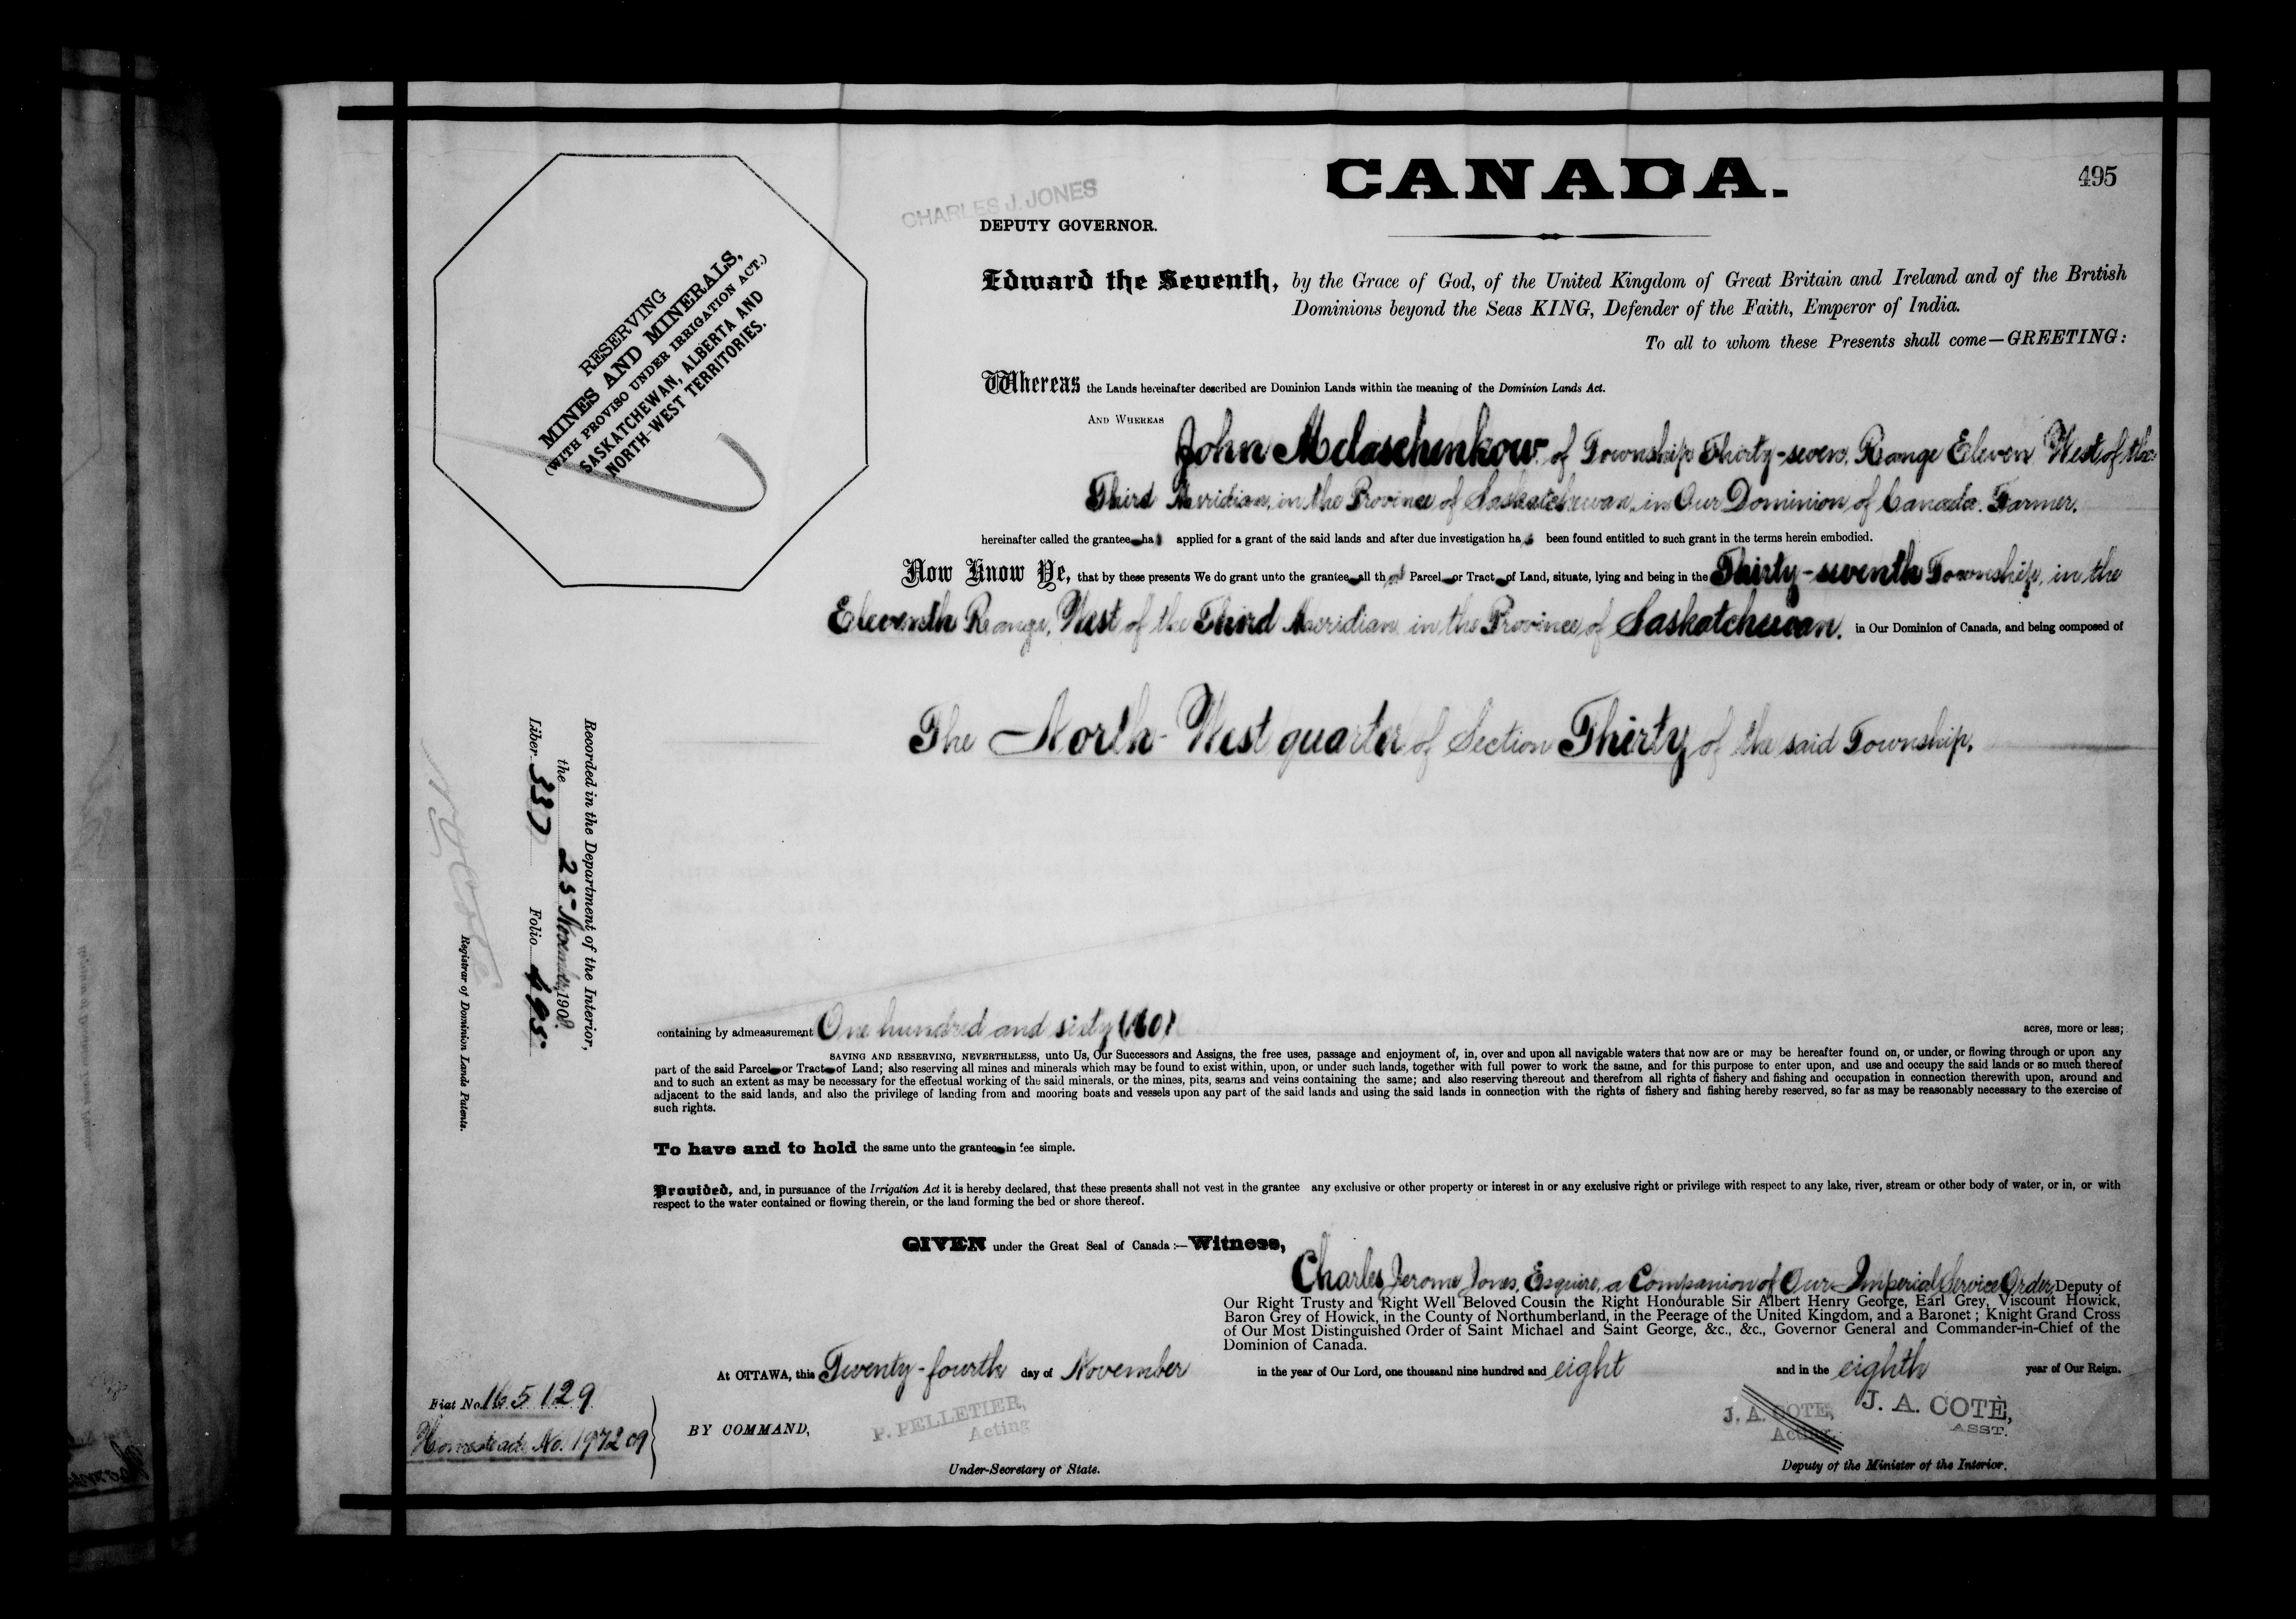 CANADA.
495
CHARLES J. JONES
DEPUTY GOVERNOR.
RESERVING
MINES AND MINERALS,
(WITH PROVISO UNDER IRRIGATION ACT.)
SASKATCHEWAN, ALBERTA AND
NORTH-WEST TERRITORIES.
Edward the Seventh, by the Grace of God, of the United Kingdom of Great Britain and Ireland and of the British
Dominions beyond the Seas KING, Defender of the Faith, Emperor of India.
To all to whom these Presents shall come—GREETING:
Whereas the Lands hereinafter described are Dominion Lands within the meaning of the Dominion Lands Act.
AND WHEREAS
John Melaschenkow of Township Thirty-seven, Range Eleven West of the
Third Meridian, in the Province of Saskatchewan, in Our Dominion of Canada. Farmer.
hereinafter called the grantee ha s applied for a grant of the said lands and after due investigation ha s been found entitled to such grant in the terms herein embodied.
Now Know Ye, that by these presents We do grant unto the grantee all th at Parcel or Tract of Land, situate, lying and being in the Thirty-seventh Township, in the
Eleventh Range, West of the Third Meridian in the Province of Saskatchewan, in Our Dominion of Canada, and being composed of
The North-West quarter of Section Thirty of the said Township.
Recorded in the Department of the Interior,
the 25 November, 1908.
Liber 337 Folio 495.
N O Coté
Registrar of Dominion Lands Patents.
containing by admeasurement One hundred and sixty (160) acres, more or less;
SAVING AND RESERVING, NEVERTHELESS, unto Us, Our Successors and Assigns, the free uses, passage and enjoyment of, in, over and upon all navigable waters that now are or may be hereafter found on, or under, or flowing through or upon any
part of the said Parcel or Tract of Land; also reserving all mines and minerals which may be found to exist within, upon, or under such lands, together with full power to work the same, and for this purpose to enter upon, and use and occupy the said lands or so much thereof
and to such an extent as may be necessary for the effectual working of the said minerals, or the mines, pits, seams and veins containing the same; and also reserving thereout and therefrom all rights of fishery and fishing and occupation in connection therewith upon, around and
adjacent to the said lands, and also the privilege of landing from and mooring boats and vessels upon any part of the said lands and using the said lands in connection with the rights of fishery and fishing hereby reserved, so far as may be reasonably necessary to the exercise of
such rights.
To have and to hold the same unto the grantee in fee simple.
Provided, and, in pursuance of the Irrigation Act it is hereby declared, that these presents shall not vest in the grantee any exclusive or other property or interest in or any exclusive right or privilege with respect to any lake, river, stream or other body of water, or in, or with
respect to the water contained or flowing therein, or the land forming the bed or shore thereof.
GIVEN under the Great Seal of Canada:—Witness,
Charles Jerome Jones, Esquire, a Companion of Our Imperial Service Order, Deputy of
Our Right Trusty and Right Well Beloved Cousin the Right Honourable Sir Albert Henry George, Earl Grey, Viscount Howick,
Baron Grey of Howick, in the County of Northumberland, in the Peerage of the United Kingdom, and a Baronet; Knight Grand Cross
of Our Most Distinguished Order of Saint Michael and Saint George, &c., &c., Governor General and Commander-in-Chief of the
Dominion of Canada.
At OTTAWA, this Twenty-fourth day of November in the year of Our Lord, one thousand nine hundred and eight and in the eighth year of Our Reign.
Fiat No. 165129
Homestead No. 197209
BY COMMAND,
P. PELLETIER,
Acting
Under-Secretary of State.
J. A. COTE,
Acting
J. A. COTÈ,
ASST.
Deputy of the Minister of the Interior.